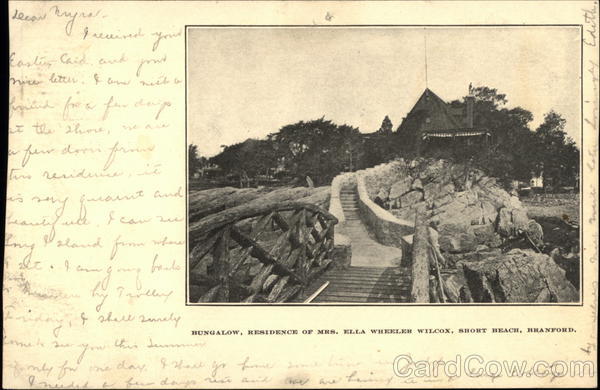 Dear Myra-
I received your
Easter Card and your
nice letter. I am
for a few days
at the shore, we are
a few doors from
this residence, it
is very quaint and
beautiful. I can see
Long Island from where
I sit. I am going back
by Trolley
I shall surely
come to see you this Summer
if only for one day. I shall go home
I needed a few days rest and we are having it
BUNGALOW, RESIDENCE OF MRS. ELLA WHEELER WILCOX, SHORT BEACH, BRANFORD.
Edith
CardCow.com